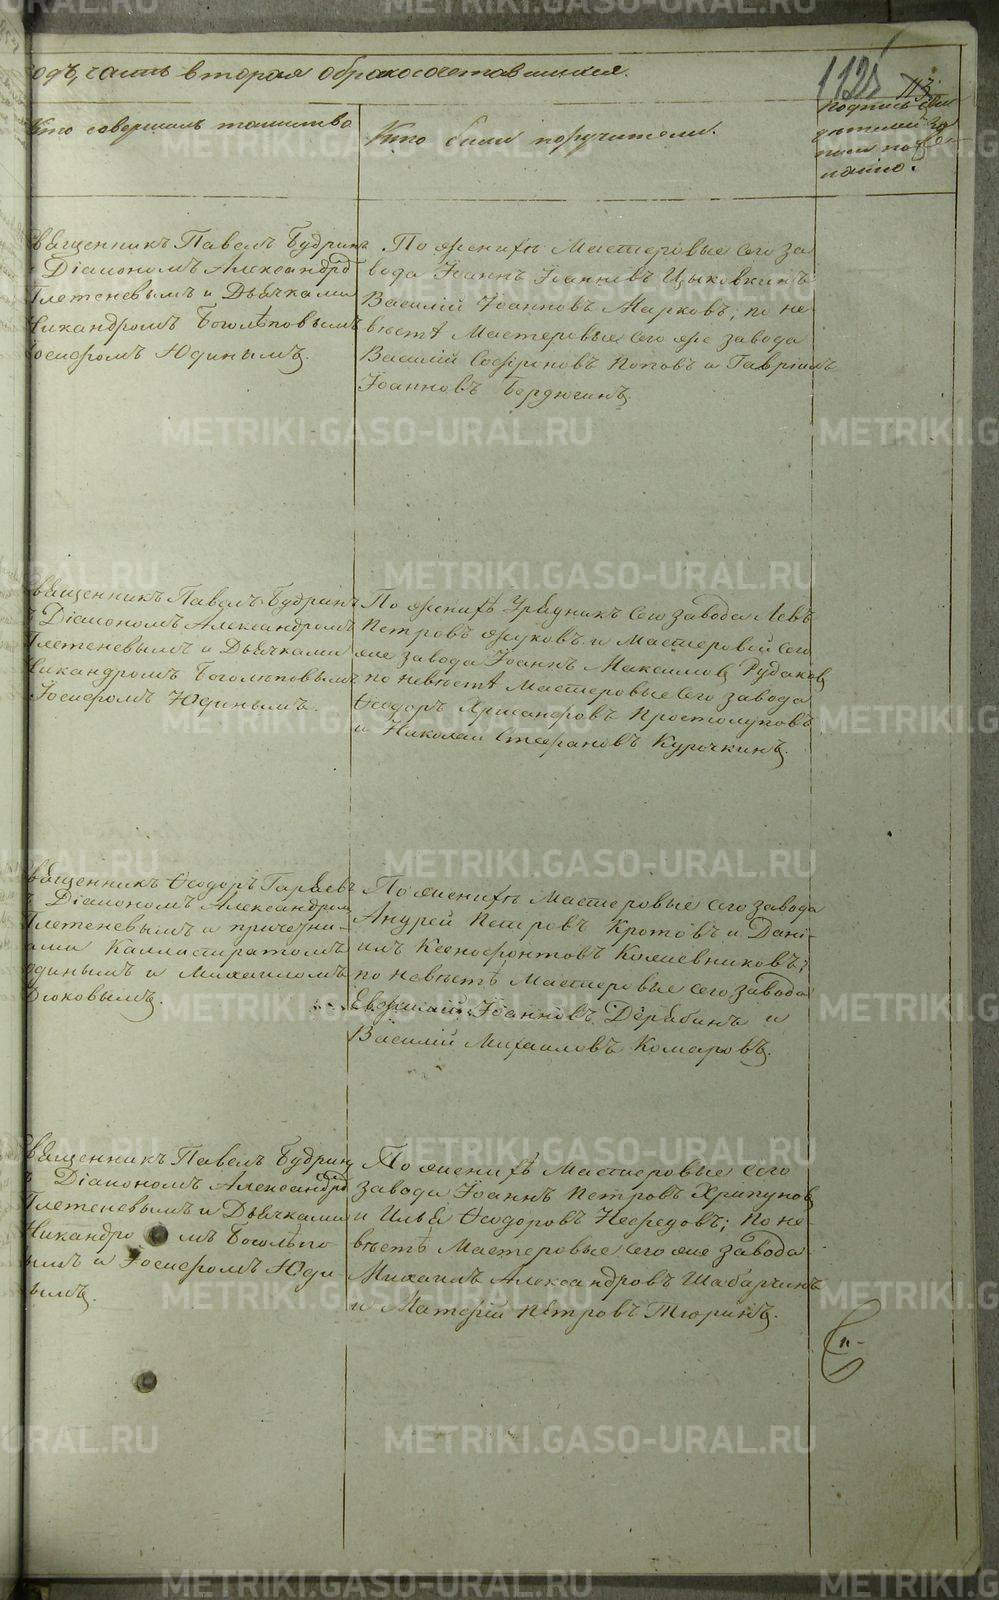 одъ, часть вторая о бракосочетавшихся.
112 113
Кто совершалъ таинство
Кто были поручители.
подпись сви
дѣтелей за
писи по же
ланію.
вященникъ Павелъ Будринъ
Діакономъ Александро
Плетеневымъ и Дьячками
Никандромъ Боголѣповымъ
Іосифомъ Юдинымъ.
По женихѣ Мастеровые сего за
вода Іоаннъ Іоанновъ Цыковкинъ
Василій Іоанновъ Марковъ; по не
вѣстѣ Мастеровые сего же завода
Василій Софроновъ Потовъ и Гавріилъ
Іоанновъ Бердюгинъ.
вященникъ Павелъ Будринъ
Діакономъ Александромъ
Плетеневымъ и Дьячками
Никандромъ Боголѣповымъ
Іосифомъ Юдинымъ.
По женихѣ Урядникъ сего завода Левъ
Петровъ Жуковъ и Мастеровой сего
же завода Іоаннъ Максимовъ Рудаковъ
по невѣстѣ Мастеровые сего завода
Ѳеодоръ Хрисанфовъ Простолуповъ
и Николай Стефановъ Курочкинъ.
вященникъ Ѳеодоръ Гаряевъ
Діакономъ Александром
Плетеневымъ и причетни-
ками Каллистратомъ
Юдинымъ и Михаиломъ
Бюковымъ.
По женихѣ Мастеровые сего завода
Андрей Петровъ Кротовъ и Дані-
илъ Ксенофонтовъ Кожевниковъ;
по невѣстѣ Мастеровые сего завода
Евфимій Іоанновъ Дерябинъ и
Василій Михаиловъ Комаровъ.
вященникъ Павелъ Будрин
Діакономъ Александро
Плетеневымъ и Дьячками
Никандромъ Боголѣпо
ымъ и Іосифомъ Юди
нымъ.
По женихѣ Мастеровые сего
завода Іоаннъ Петровъ Хрипуновъ
и Илья Ѳеодоровъ Нефедовъ; по не-
вѣстѣ Мастеровые сего же завода
Михаилъ Александровъ Шабарчинъ
и Матфій Петровъ Тюринъ.
METRIKI.GASO-URAL.RU